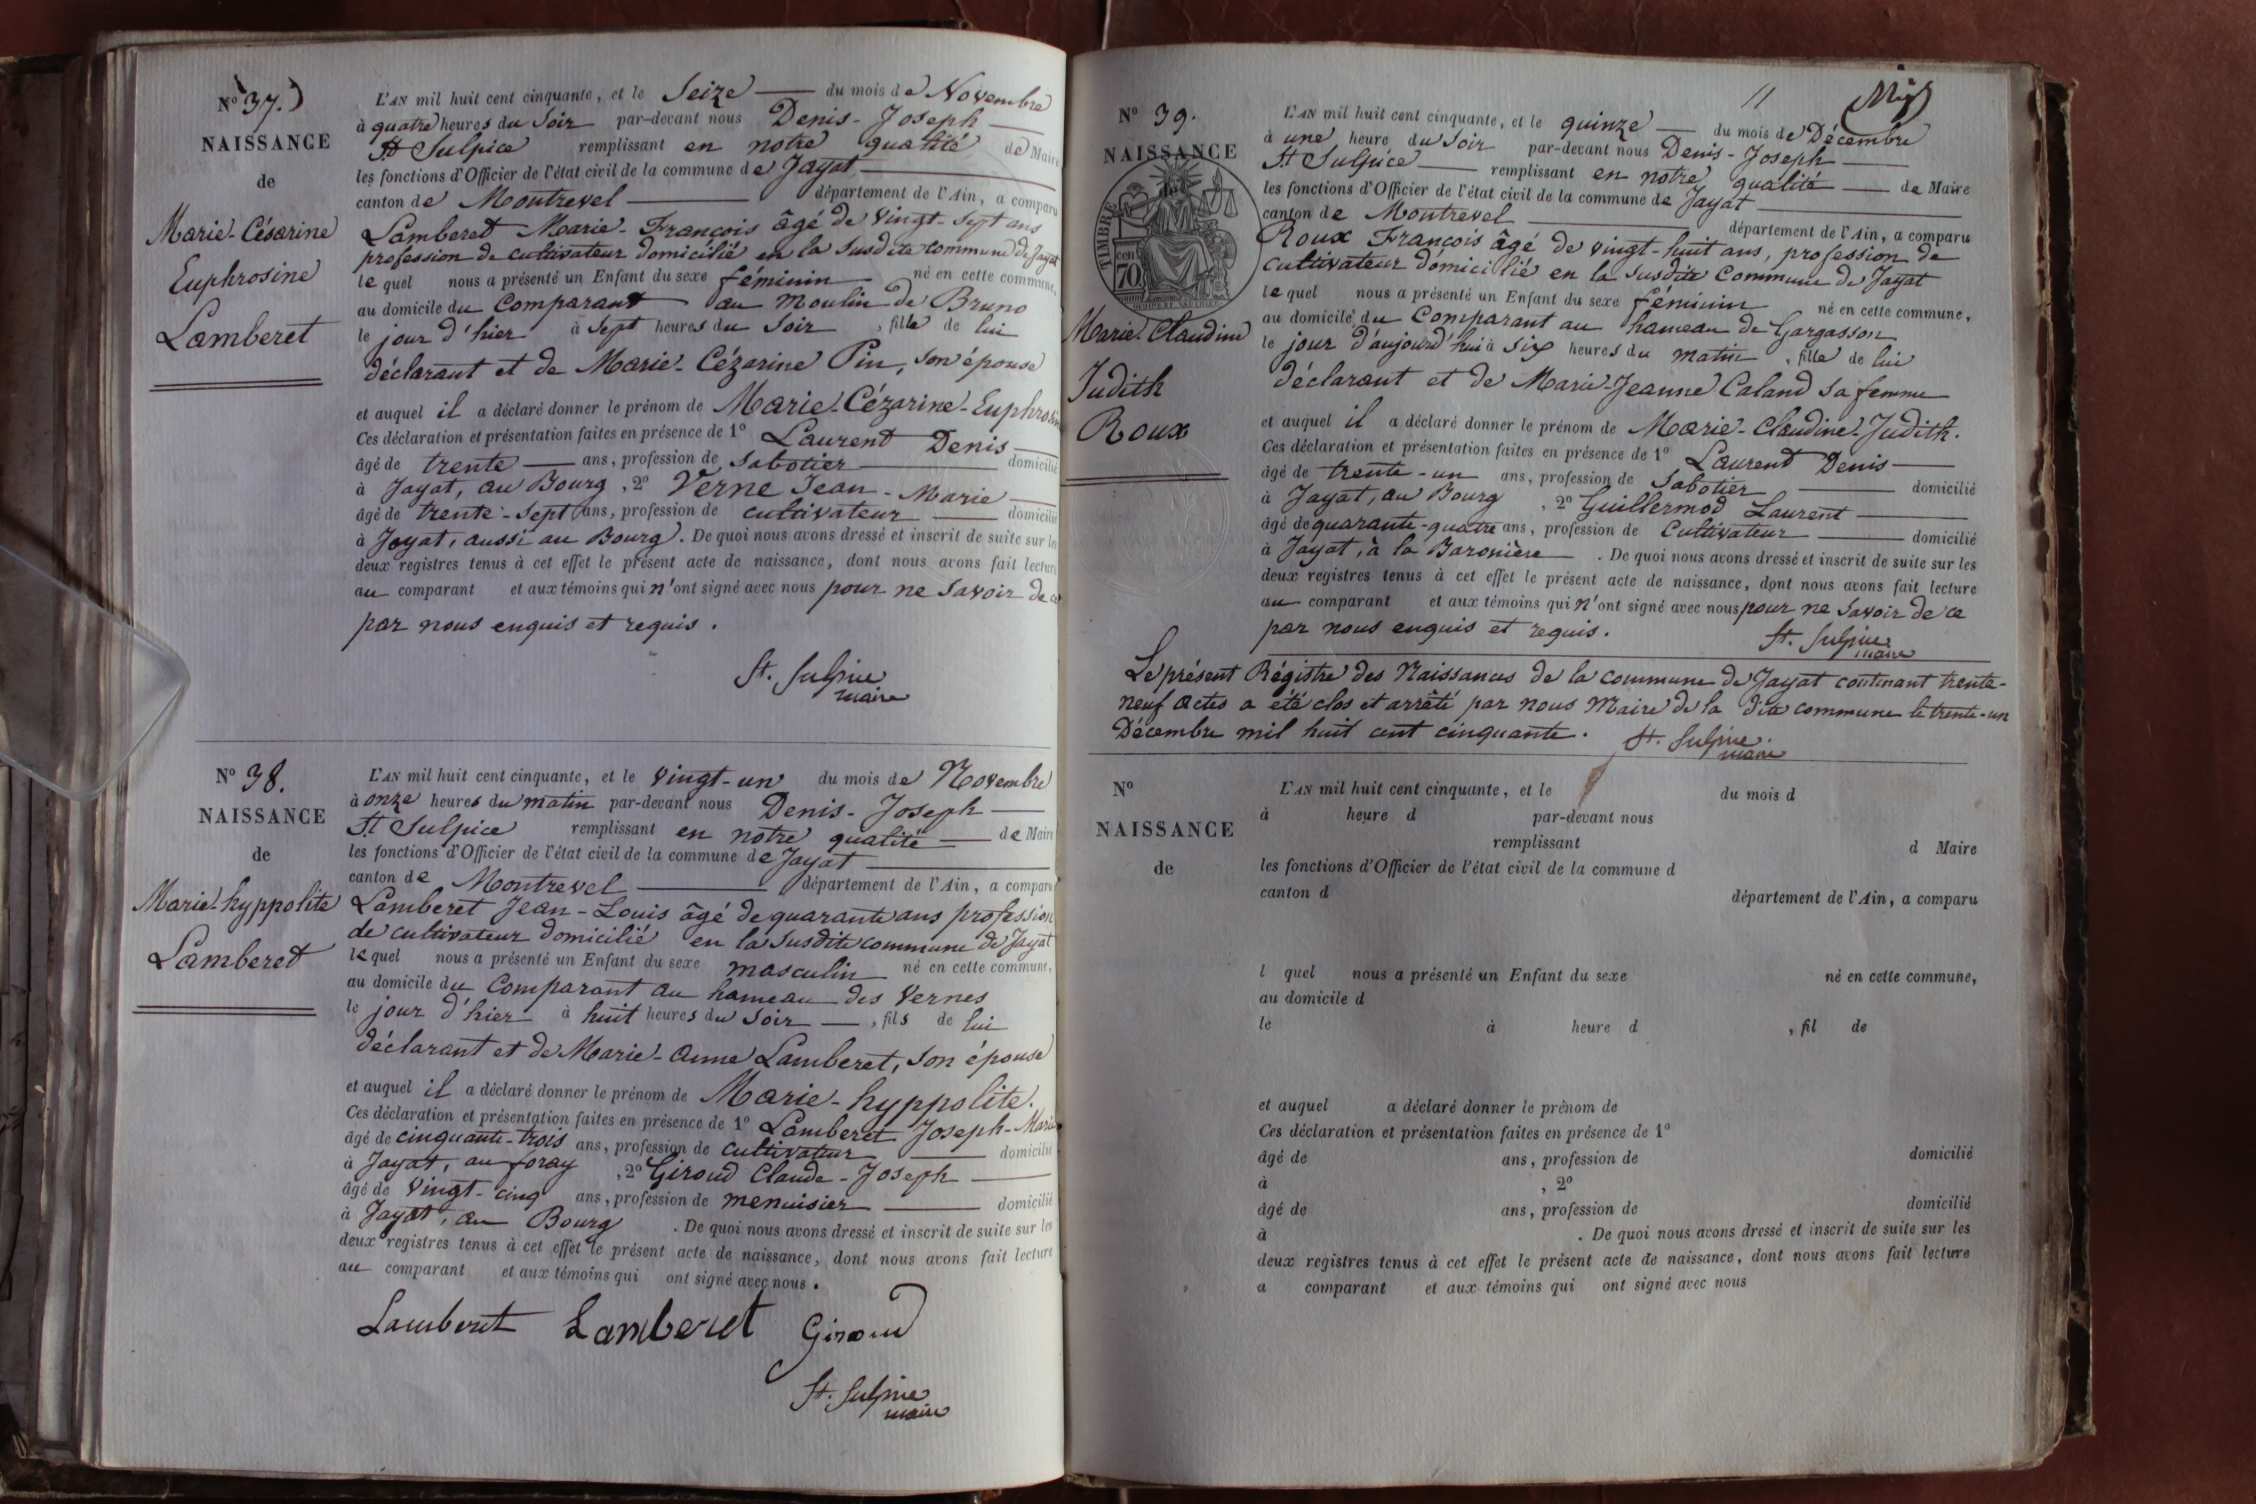 N° 37.
NAISSANCE
de
Marie-Césarine
Euphrosine
Lamberet
L'AN mil huit cent cinquante, et le Seize du mois de Novembre
à quatre heures du Soir par-devant nous Denis-Joseph
St Sulpice remplissant en notre qualité de Maire
les fonctions d'Officier de l'état civil de la commune de Jayat
canton de Montrevel département de l'Ain, a comparu
Lamberet Marie-François âgé de vingt-sept ans
profession de cultivateur domicilié en la susdite commune de Jayat
lequel nous a présenté un Enfant du sexe féminin né en cette commune,
au domicile du Comparant au Moulin de Bruno
le jour d'hier à Sept heures du Soir, fille de lui
déclarant et de Marie-Cézarine Pin, son épouse
et auquel il a déclaré donner le prénom de Marie-Cézarine-Euphrosine
Ces déclaration et présentation faites en présence de 1° Laurent Denis
âgé de trente ans, profession de Sabotier domicilié
à Jayat, au Bourg, 2° Verne Jean-Marie
âgé de trente-sept ans, profession de cultivateur domicilié
à Jayat, aussi au Bourg. De quoi nous avons dressé et inscrit de suite sur les
deux registres tenus à cet effet le présent acte de naissance, dont nous avons fait lecture
au comparant et aux témoins qui n'ont signé avec nous pour ne savoir de ce
par nous enquis et requis.
St. Sulpice
maire
N° 38.
NAISSANCE
de
Marie-hyppolite
Lamberet
L'AN mil huit cent cinquante, et le vingt-un du mois de Novembre
à onze heures du matin par-devant nous Denis-Joseph
St Sulpice remplissant en notre qualité de Maire
les fonctions d'Officier de l'état civil de la commune de Jayat
canton de Montrevel département de l'Ain, a comparu
Lamberet Jean-Louis âgé de quarante ans profession
de cultivateur domicilié en la susdite commune de Jayat
lequel nous a présenté un Enfant du sexe masculin né en cette commune,
au domicile du Comparant au hameau des Vernes
le jour d'hier à huit heures du Soir, fils de lui
déclarant et de Marie-Anne Lamberet, son épouse
et auquel il a déclaré donner le prénom de Marie-hyppolite.
Ces déclaration et présentation faites en présence de 1° Lamberet Joseph-Marie
âgé de cinquante-trois ans, profession de cultivateur domicilié
à Jayat, au foray, 2° Giroud Claude-Joseph
âgé de vingt-cinq ans, profession de menuisier domicilié
à Jayat, au Bourg. De quoi nous avons dressé et inscrit de suite sur les
deux registres tenus à cet effet le présent acte de naissance, dont nous avons fait lecture
au comparant et aux témoins qui ont signé avec nous.
Lamberet Lamberet Giroud
St. Sulpice
maire
11
N° 39.
NAISSANCE
TIMBRE
cen 70
Marie-Claudine
Judith
Roux
L'AN mil huit cent cinquante, et le quinze du mois de Décembre
à une heure du Soir par-devant nous Denis-Joseph
St Sulpice remplissant en notre qualité de Maire
les fonctions d'Officier de l'état civil de la commune de Jayat
canton de Montrevel département de l'Ain, a comparu
Roux François âgé de vingt-huit ans, profession de
cultivateur domicilié en la susdite Commune de Jayat
lequel nous a présenté un Enfant du sexe féminin né en cette commune,
au domicile du Comparant au hameau de Gargasson
le jour d'aujourd'hui à six heures du matin, fille de lui
déclarant et de Marie-Jeanne Caland sa femme
et auquel il a déclaré donner le prénom de Marie-Claudine-Judith.
Ces déclaration et présentation faites en présence de 1° Laurent Denis
âgé de trente-un ans, profession de Sabotier domicilié
à Jayat, au Bourg, 2° Guillermod Laurent
âgé de quarante-quatre ans, profession de Cultivateur domicilié
à Jayat, à la Baronière. De quoi nous avons dressé et inscrit de suite sur les
deux registres tenus à cet effet le présent acte de naissance, dont nous avons fait lecture
au comparant et aux témoins qui n'ont signé avec nous pour ne savoir de ce
par nous enquis et requis.
St. Sulpice
maire
Le présent Régistre des Naissances de la commune de Jayat contenant trente-
neuf actes a été clos et arrêté par nous Maire de la dite commune le trente-un
Décembre mil huit cent cinquante. St. Sulpice
maire
N°
NAISSANCE
de
L'AN mil huit cent cinquante, et le du mois d
à heure d par-devant nous
remplissant d Maire
les fonctions d'Officier de l'état civil de la commune d
canton d département de l'Ain, a comparu
l quel nous a présenté un Enfant du sexe né en cette commune,
au domicile d
le à heure d , fil de
et auquel a déclaré donner le prénom de
Ces déclaration et présentation faites en présence de 1°
âgé de ans, profession de domicilié
à , 2°
âgé de ans, profession de domicilié
à . De quoi nous avons dressé et inscrit de suite sur les
deux registres tenus à cet effet le présent acte de naissance, dont nous avons fait lecture
a comparant et aux témoins qui ont signé avec nous